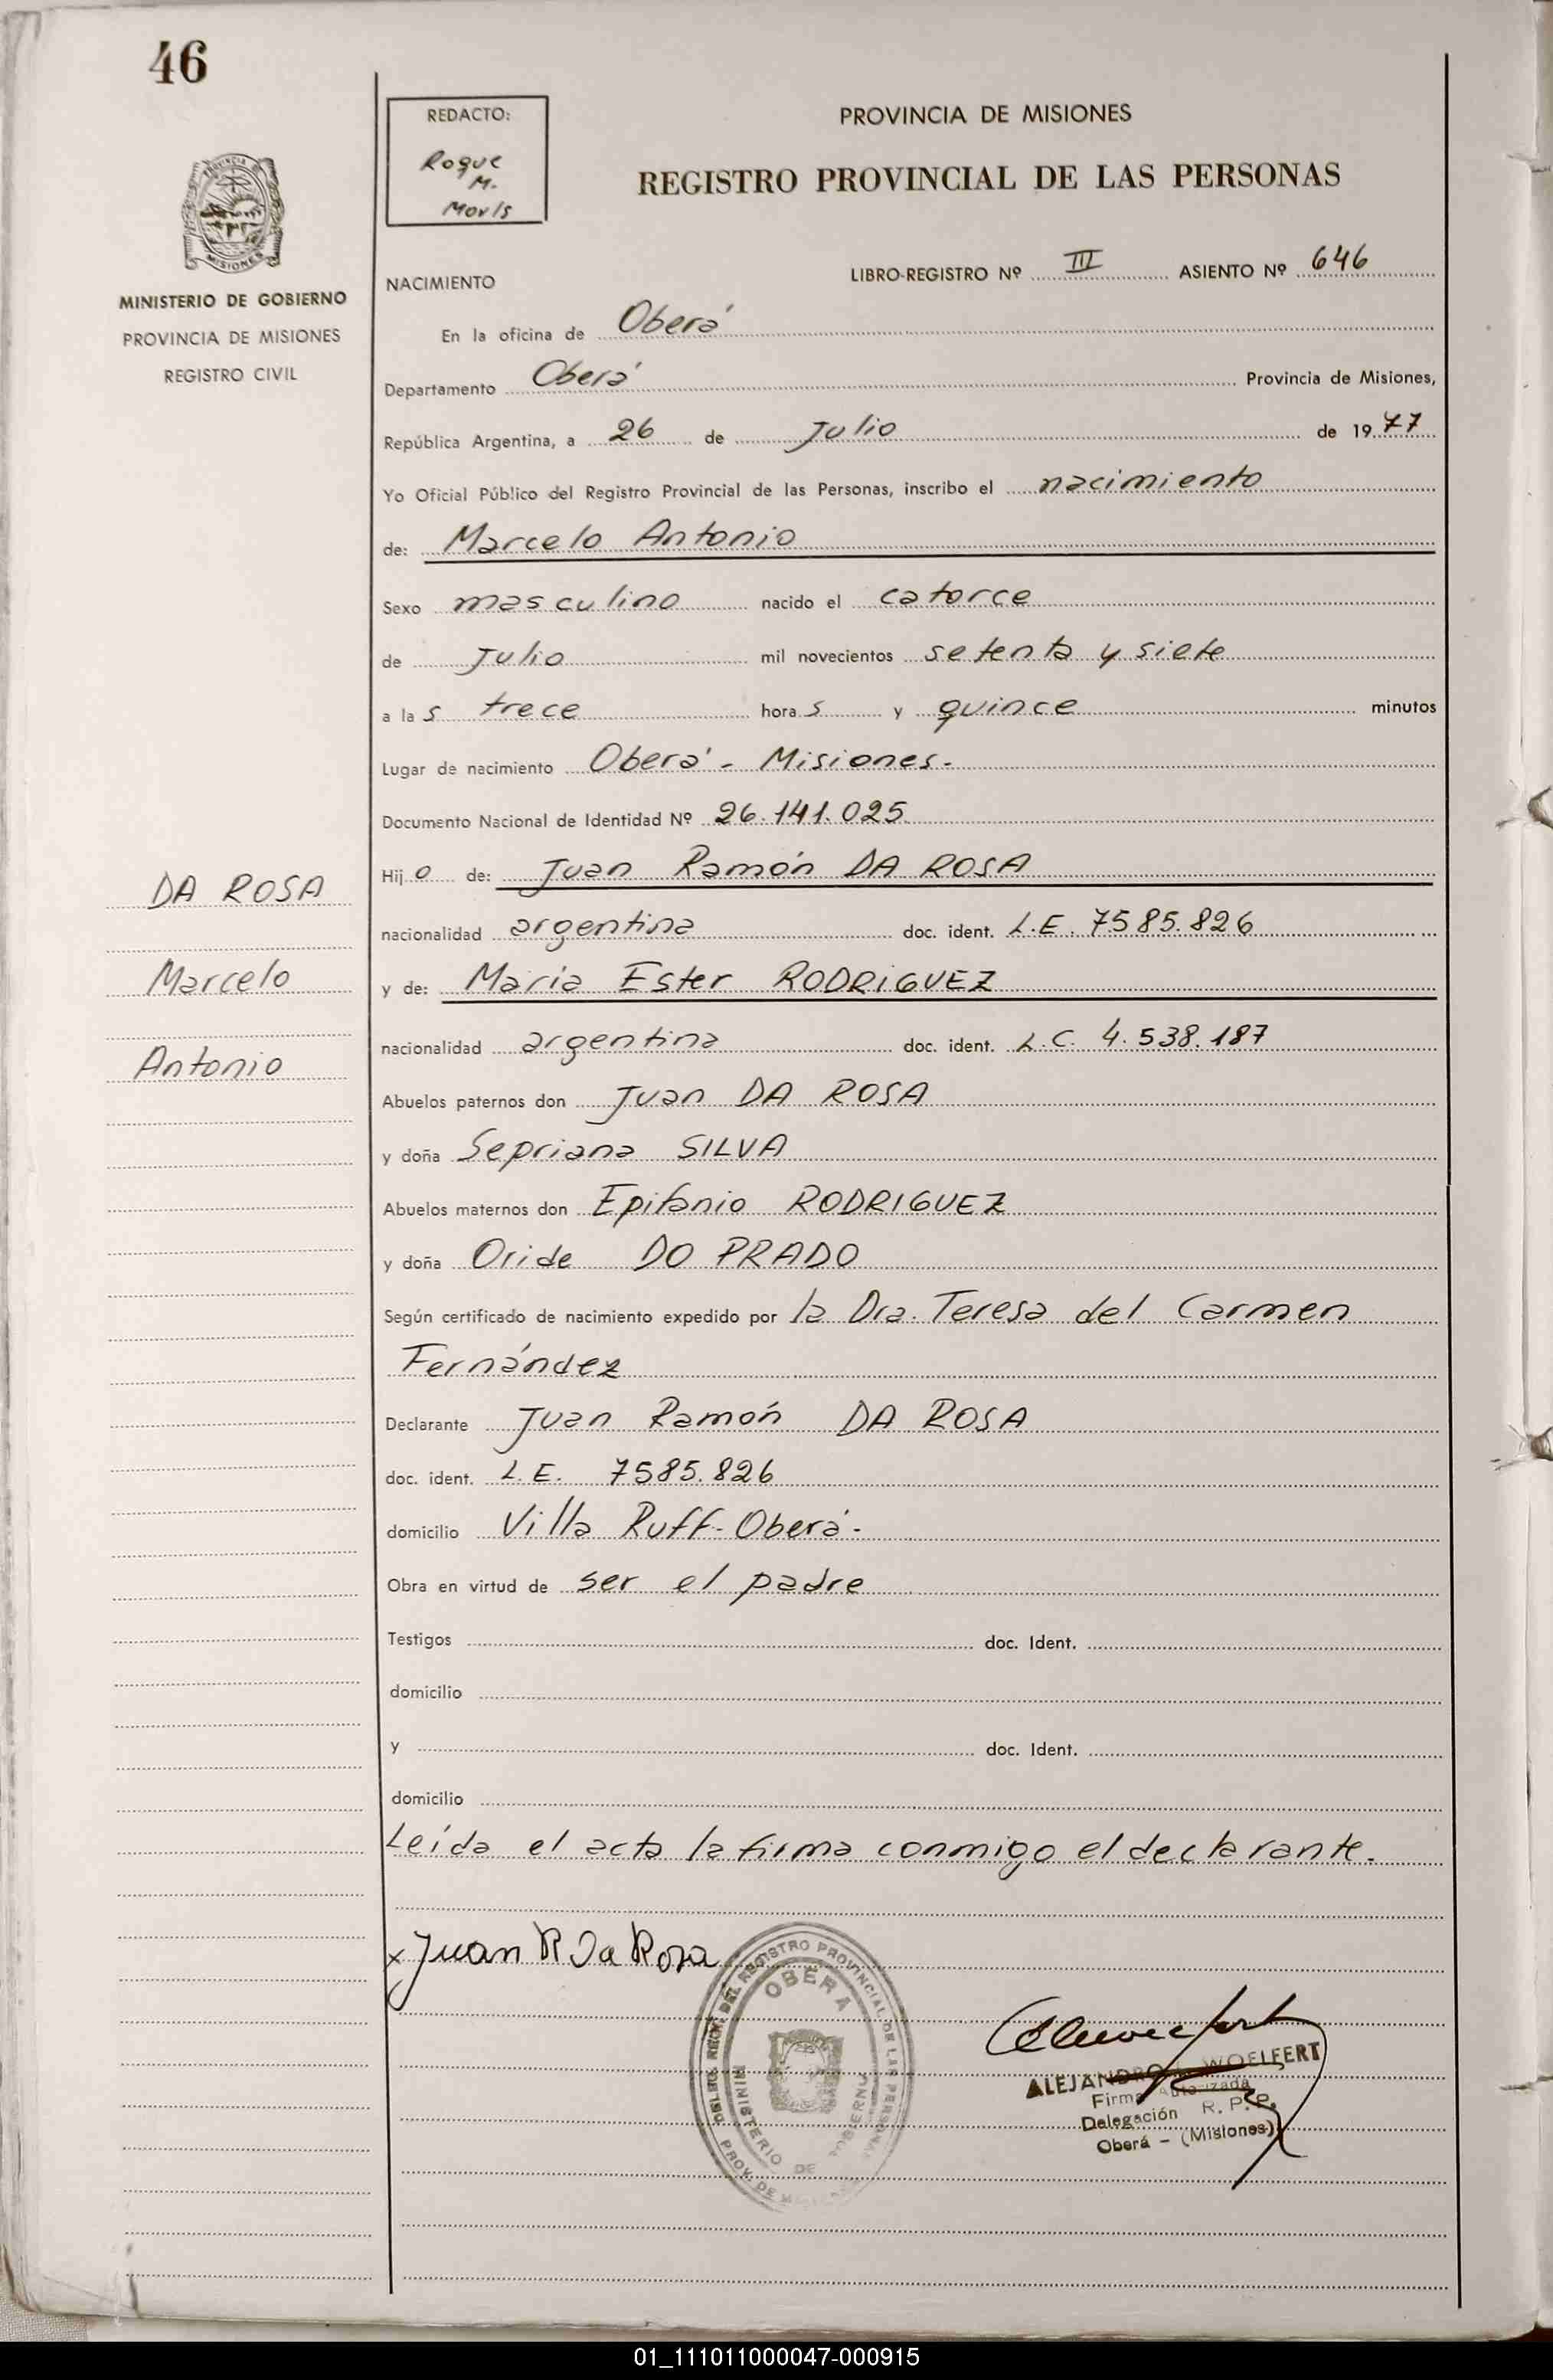 46
REDACTO:
Roque
M.
Movis
PROVINCIA DE MISIONES
REGISTRO PROVINCIAL DE LAS PERSONAS
PROVINCIA DE
MISIONES
MINISTERIO DE GOBIERNO
PROVINCIA DE MISIONES
REGISTRO CIVIL
NACIMIENTO
LIBRO-REGISTRO Nº III ASIENTO Nº 646
En la oficina de Oberá
Departamento Oberá Provincia de Misiones,
República Argentina, a 26 de Julio de 1977
Yo Oficial Público del Registro Provincial de las Personas, inscribo el nacimiento
de: Marcelo Antonio
Sexo masculino nacido el catorce
de Julio mil novecientos setenta y siete
a las trece horas y quince minutos
Lugar de nacimiento Oberá - Misiones-
Documento Nacional de Identidad Nº 26.141.025
Hijo de: Juan Ramón DA ROSA
nacionalidad argentina doc. ident. L.E. 7585.826
y de: María Ester RODRIGUEZ
nacionalidad argentina doc. ident. L.C. 4.538.187
Abuelos paternos don Juan DA ROSA
y doña Sepriana SILVA
Abuelos maternos don Epifanio RODRIGUEZ
y doña Oride DO PRADO
Según certificado de nacimiento expedido por la Dra. Teresa del Carmen
Fernández
Declarante Juan Ramón DA ROSA
doc. ident. L.E. 7585.826
domicilio Villa Ruff-Oberá-
Obra en virtud de ser el padre
Testigos doc. Ident.
domicilio
y doc. Ident.
domicilio
Leída el acta la firma conmigo el declarante.
DA ROSA
Marcelo
Antonio
x Juan R Da Rosa
REGISTRO PROVINCIAL DE LAS PERSONAS
OBERA
MINISTERIO DE GOBIERNO
PROV. DE
ALEJANDRO WOELFERT
Firma Autorizada
Delegación R. P. P.
Oberá - (Misiones)
01_111011000047-000915